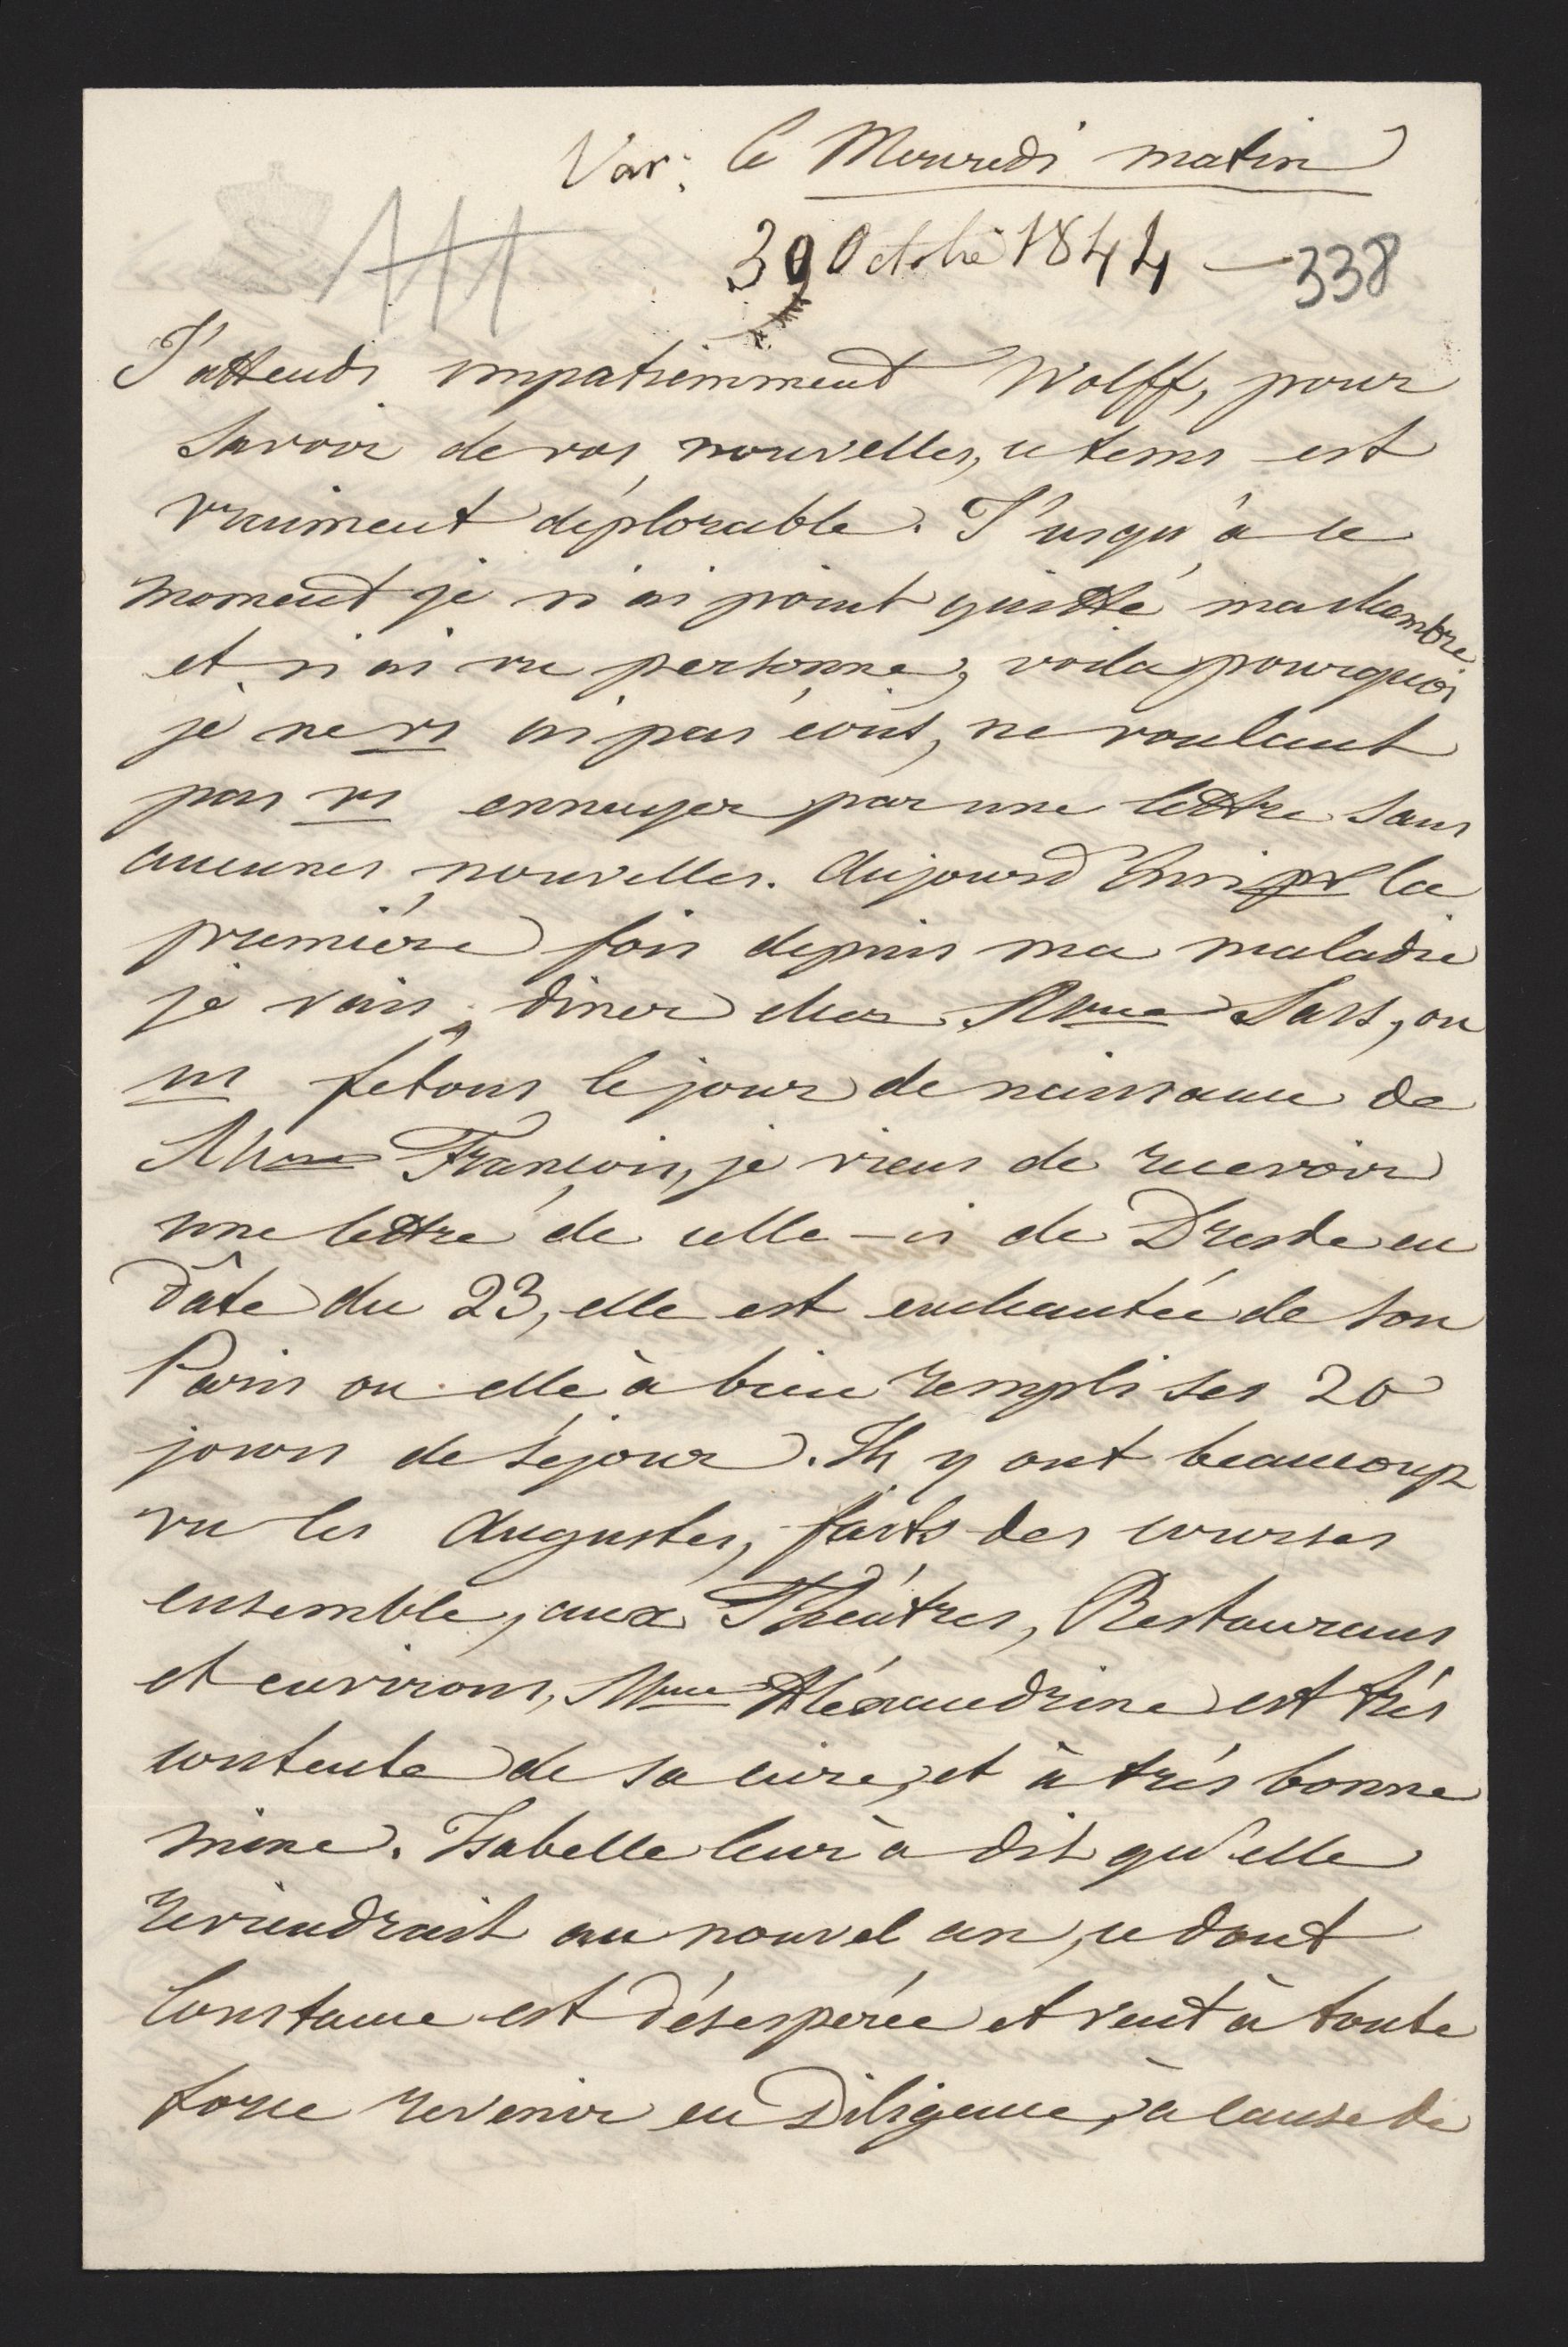 Var: le Mercredi matin
30 Octobre 1844 — 338
J'attends impatiemment Wolff, pour
savoir de vos nouvelles, ce tems est
vraiment déplorable. J'usqu'à ce
moment je n'ai point quitté ma chambre
et n'ai vu personne, voila pourquoi
je ne vs ai pas écrit, ne voulant
pas vs ennuyer par une lettre sans
aucunes nouvelles. Aujourd'hui pr la
première fois depuis ma maladie
je vais diner chez Mme, ou
ns fetons le jour de naissance de
Mme François, je viens de recevoir
une lettre de celle-ci de Dresde en
dâte du 23, elle est enchantée de son
Paris ou elle à bien rempli ses 20
jours de séjour. Ils y ont beaucoup
vu les Augustes, faits des courses
ensemble, aux Théâtres, Restaurans
et environs, Mme Aléxandrine est très
contente de sa cure, et à très bonne
mine. Isabelle leur à dit qu'elle
reviendrait au nouvel an, ce dont
Constance est désesperée et veut à toute
force revenir en Diligence, à cause de